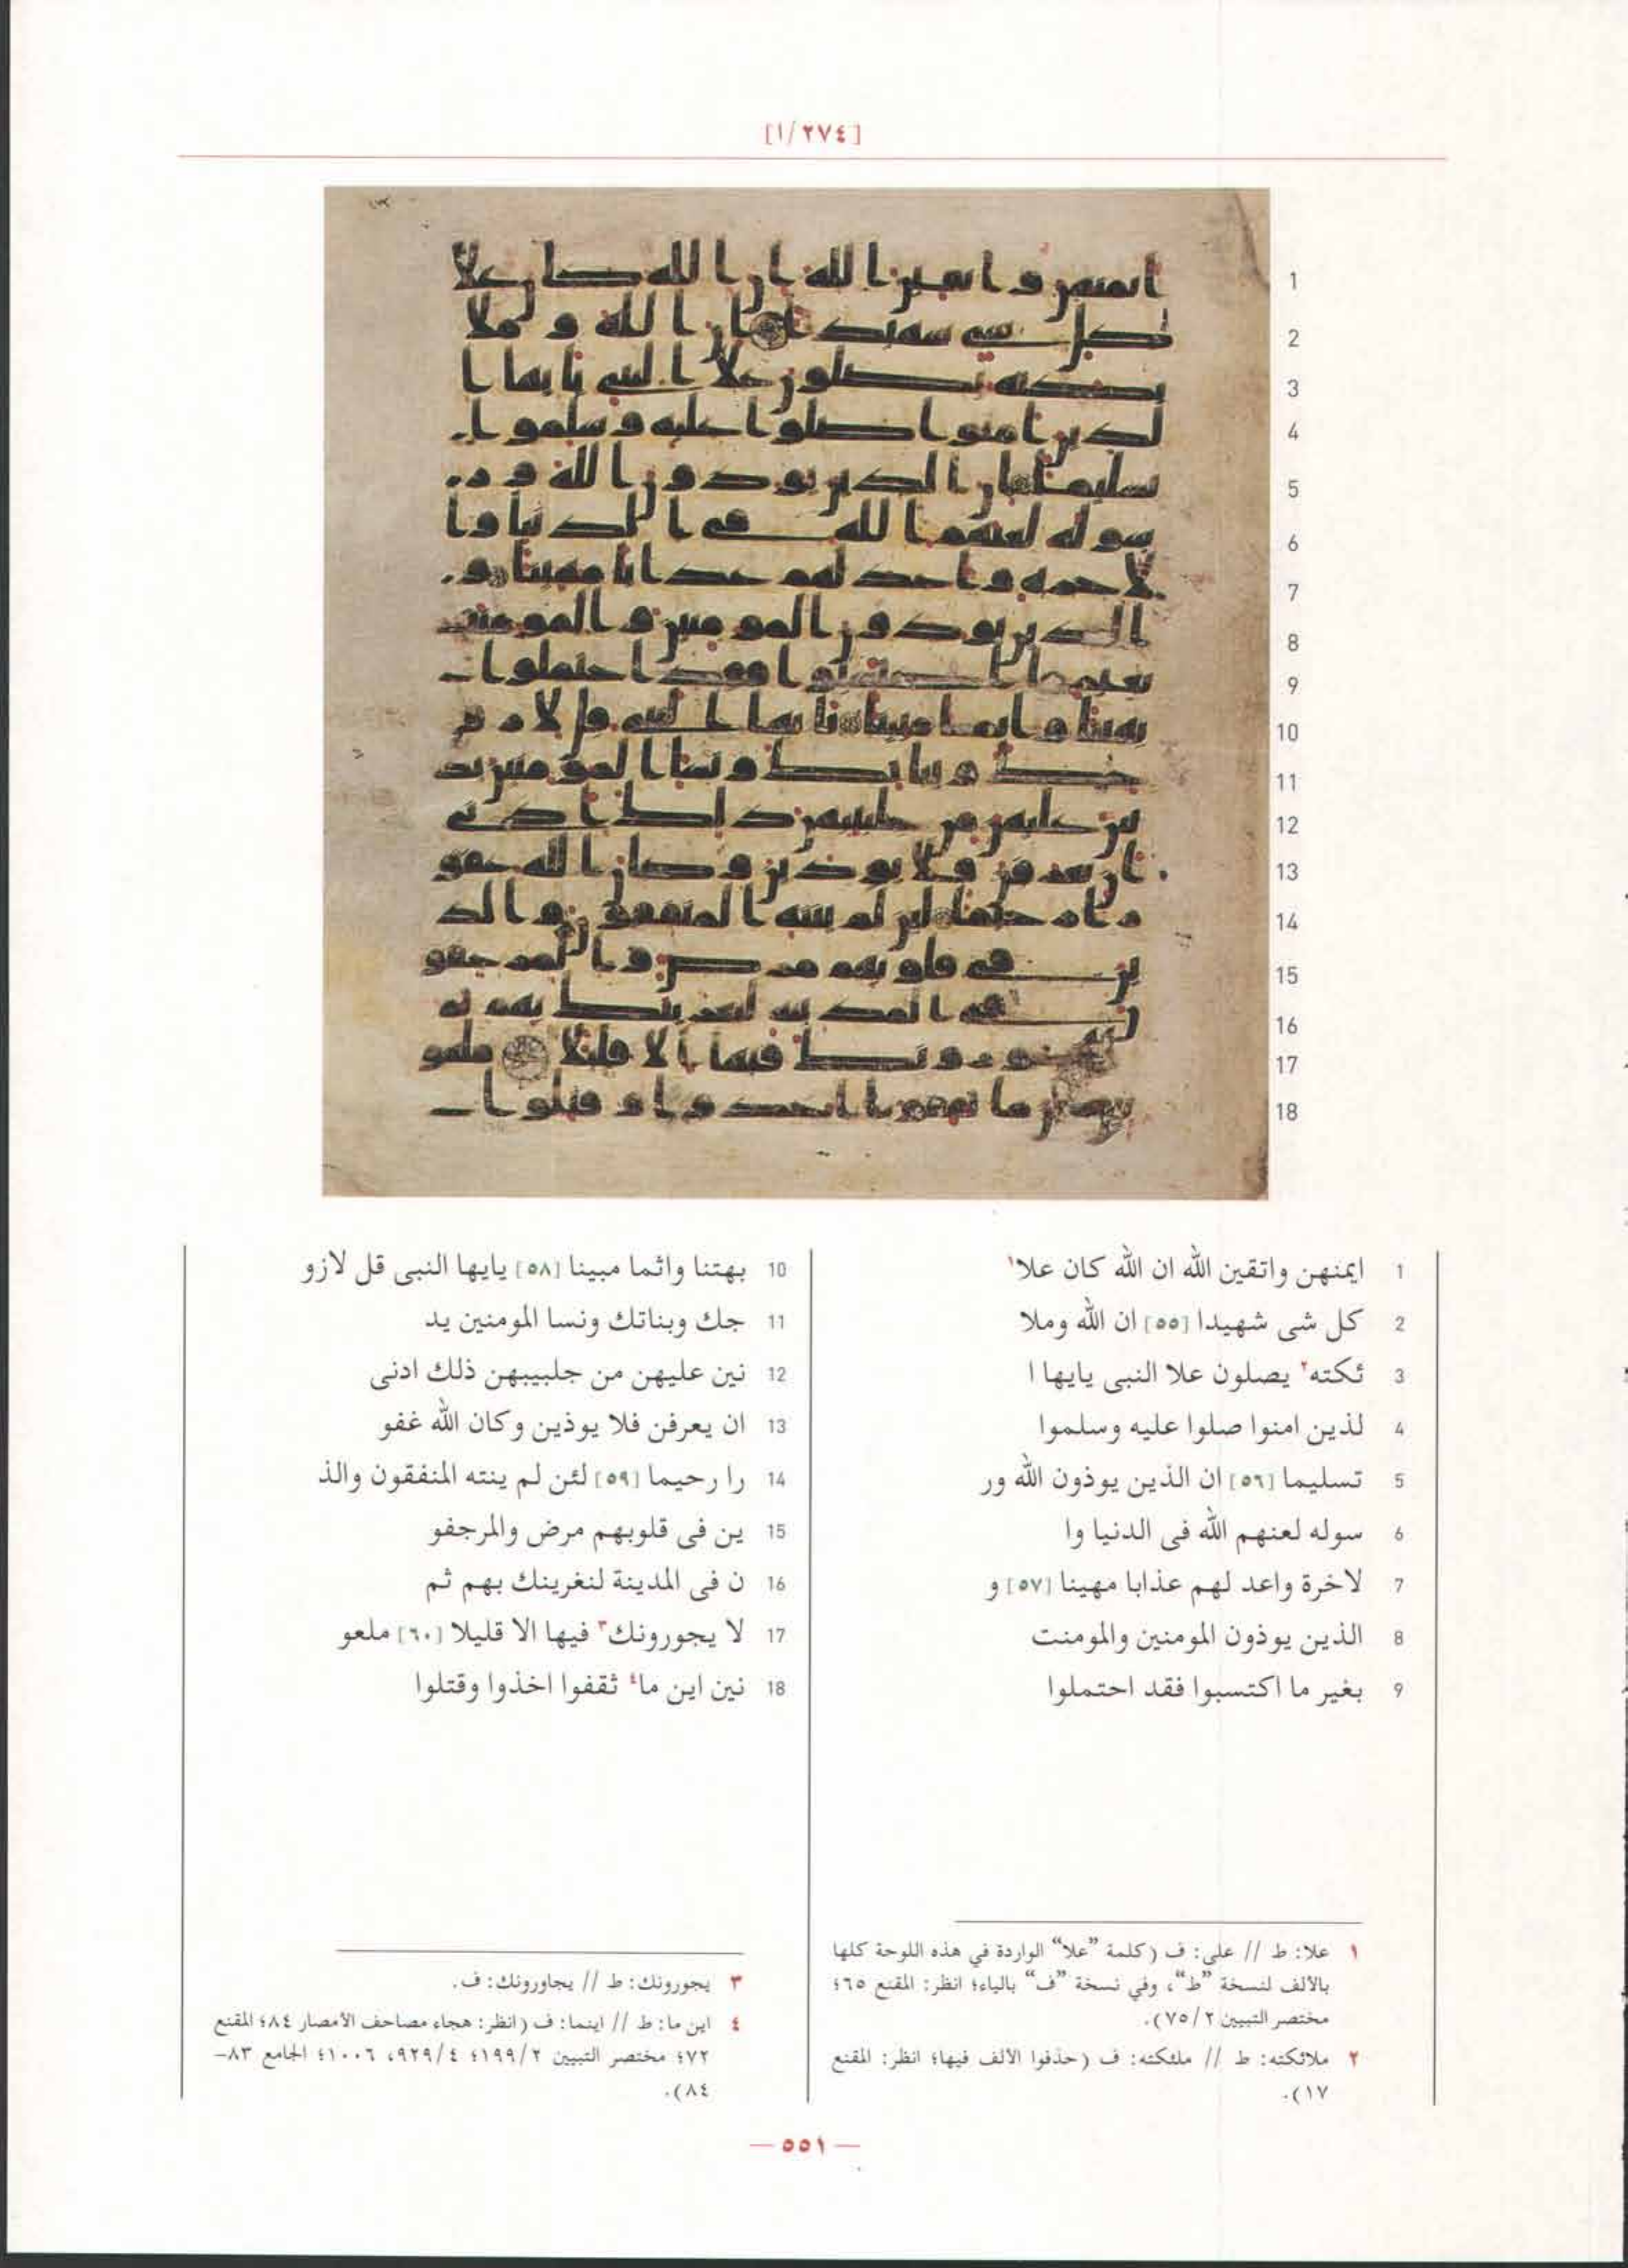 [٢٧٤/ا]
1 ايمنهن واتقين الله ان الله كان علا١
2 كل شى شهيدا [٥٥] ان الله وملا
3 ئكته٢ يصلون علا النبى يايها ا
4 لذين امنوا صلوا عليه وسلموا
5 تسليما [٥٦] ان الذين يوذون الله ور
6 سوله لعنهم الله فى الدنيا وا
7 لاخرة واعد لهم عذابا مهينا [٥٧] و
8 الذين يوذون المومنين والمومنت
9 بغير ما اكتسبوا فقد احتملوا
10 بهتنا واثما مبينا [٥٨] يايها النبى قل لازو
11 جك وبناتك ونسا المومنين يد
12 نين عليهن من جلبيبهن ذلك ادنى
13 ان يعرفن فلا يوذين وكان الله غفو
14 را رحيما [٥٩] لئن لم ينته المنفقون والذ
15 ين فى قلوبهم مرض والمرجفو
16 ن فى المدينة لنغرينك بهم ثم
17 لا يجورونك٣ فيها الا قليلا [٦٠] ملعو
18 نين اين ما٤ ثقفوا اخذوا وقتلوا
١ علا: ط // على: ف (كلمة "علا" الواردة في هذه اللوحة كلها
بالألف لنسخة "ط"، وفي نسخة "ف" بالياء؛ انظر: المقنع ٦٥؛
مختصر التبيين ٧٥/٢).
٢ ملائكته: ط // ملئكته: ف (حذفوا الألف فيها؛ انظر: المقنع
١٧).
٣ يجورونك: ط // يجاورونك: ف.
٤ اين ما: ط // اينما: ف (انظر: هجاء مصاحف الأمصار ٨٤؛ المقنع
٧٢؛ مختصر التبيين ١٩٩/٢؛ ٩٢٩/٤، ١٠٠٦؛ الجامع ٨٣-
٨٤).
— ٥٥١ —